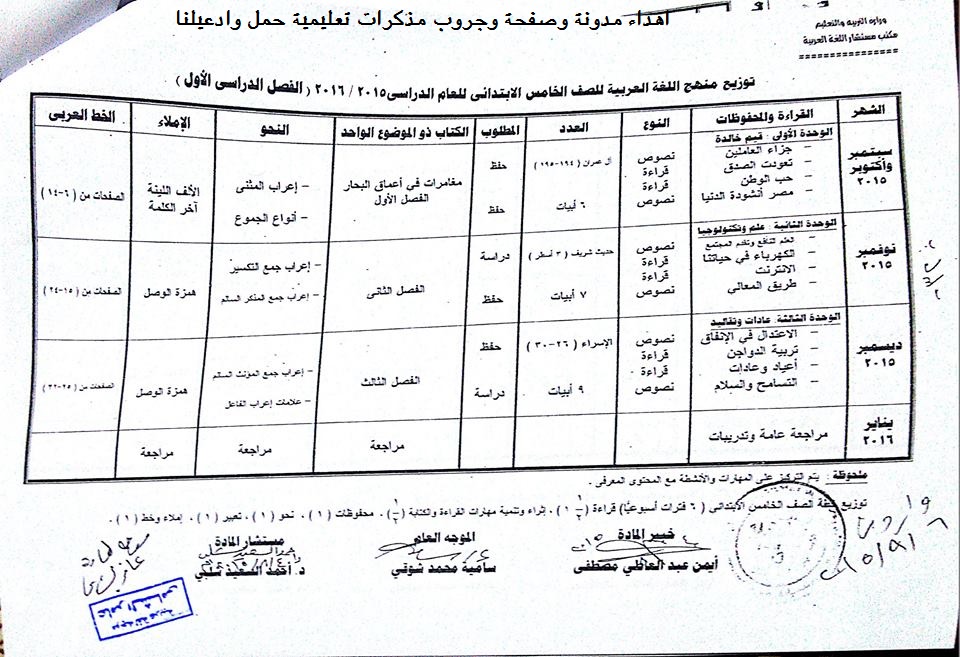 اهداء مدونة وصفحة وجروب مذكرات تعليمية حمل وادعيلنا
وزارة التربية والتعليم
مكتب مستشار اللغة العربية
توزيع منهج اللغة العربية للصف الخامس الابتدائى للعام الدراسى ٢٠١٥ / ٢٠١٦ ( الفصل الدراسى الأول )
الشهر القراءة والمحفوظات النوع العدد المطلوب الكتاب ذو الموضوع الواحد النحو الإملاء الخط العربى
سبتمبر وأكتوبر ٢٠١٥
الوحدة الأولى : قيم خالدة
– جزاء العاملين نصوص آل عمران ( ١٩٤ -١٩٥ ) حفظ
– تعودت الصدق قراءة
– حب الوطن قراءة
– مصر أنشودة الدنيا نصوص ٦ أبيات حفظ
مغامرات فى أعماق البحار
الفصل الأول
– إعراب المثنى
– أنواع الجموع
الألف اللينة
آخر الكلمة
الصفحات من ( ٦-١٤ )
نوفمبر ٢٠١٥
الوحدة الثانية : علم وتكنولوجيا
– العلم النافع وتقدم المجتمع نصوص حديث شريف ( ٣ أسطر ) دراسة
– الكهرباء في حياتنا قراءة
– الانترنت قراءة
– طريق المعالي نصوص ٧ أبيات حفظ
الفصل الثانى
– إعراب جمع التكسير
– إعراب جمع المذكر السالم
همزة الوصل
الصفحات من ( ١٥-٢٤ )
ديسمبر ٢٠١٥
الوحدة الثالثة: عادات وتقاليد
– الاعتدال في الإنفاق نصوص الإسراء ( ٢٦-٣٠ ) حفظ
– تربية الدواجن قراءة
– أعياد وعادات قراءة
– التسامح والسلام نصوص ٩ أبيات دراسة
الفصل الثالث
– إعراب جمع المؤنث السالم
– علامات إعراب الفاعل
همزة الوصل
الصفحات من ( ٢٥-٣٢ )
يناير ٢٠١٦
مراجعة عامة وتدريبات مراجعة مراجعة مراجعة
ملحوظة : يتم التركيز على المهارات والأنشطة مع المحتوى المعرفى .
توزيع خطة الصف الخامس الابتدائى ( ٦ فترات أسبوعيًا) قراءة ( ١ ١/٢ ) ، إثراء وتنمية مهارات القراءة والكتابة ( ١/٢ ) ، محفوظات ( ١ ) ، نحو ( ١ ) ، تعبير ( ١ ) ، إملاء وخط ( ١ ) .
خبير المادة الموجه العام مستشار المادة
أيمن عبد العاطي مصطفى سامية محمد شوقي د. أحمد السعيد شلبي